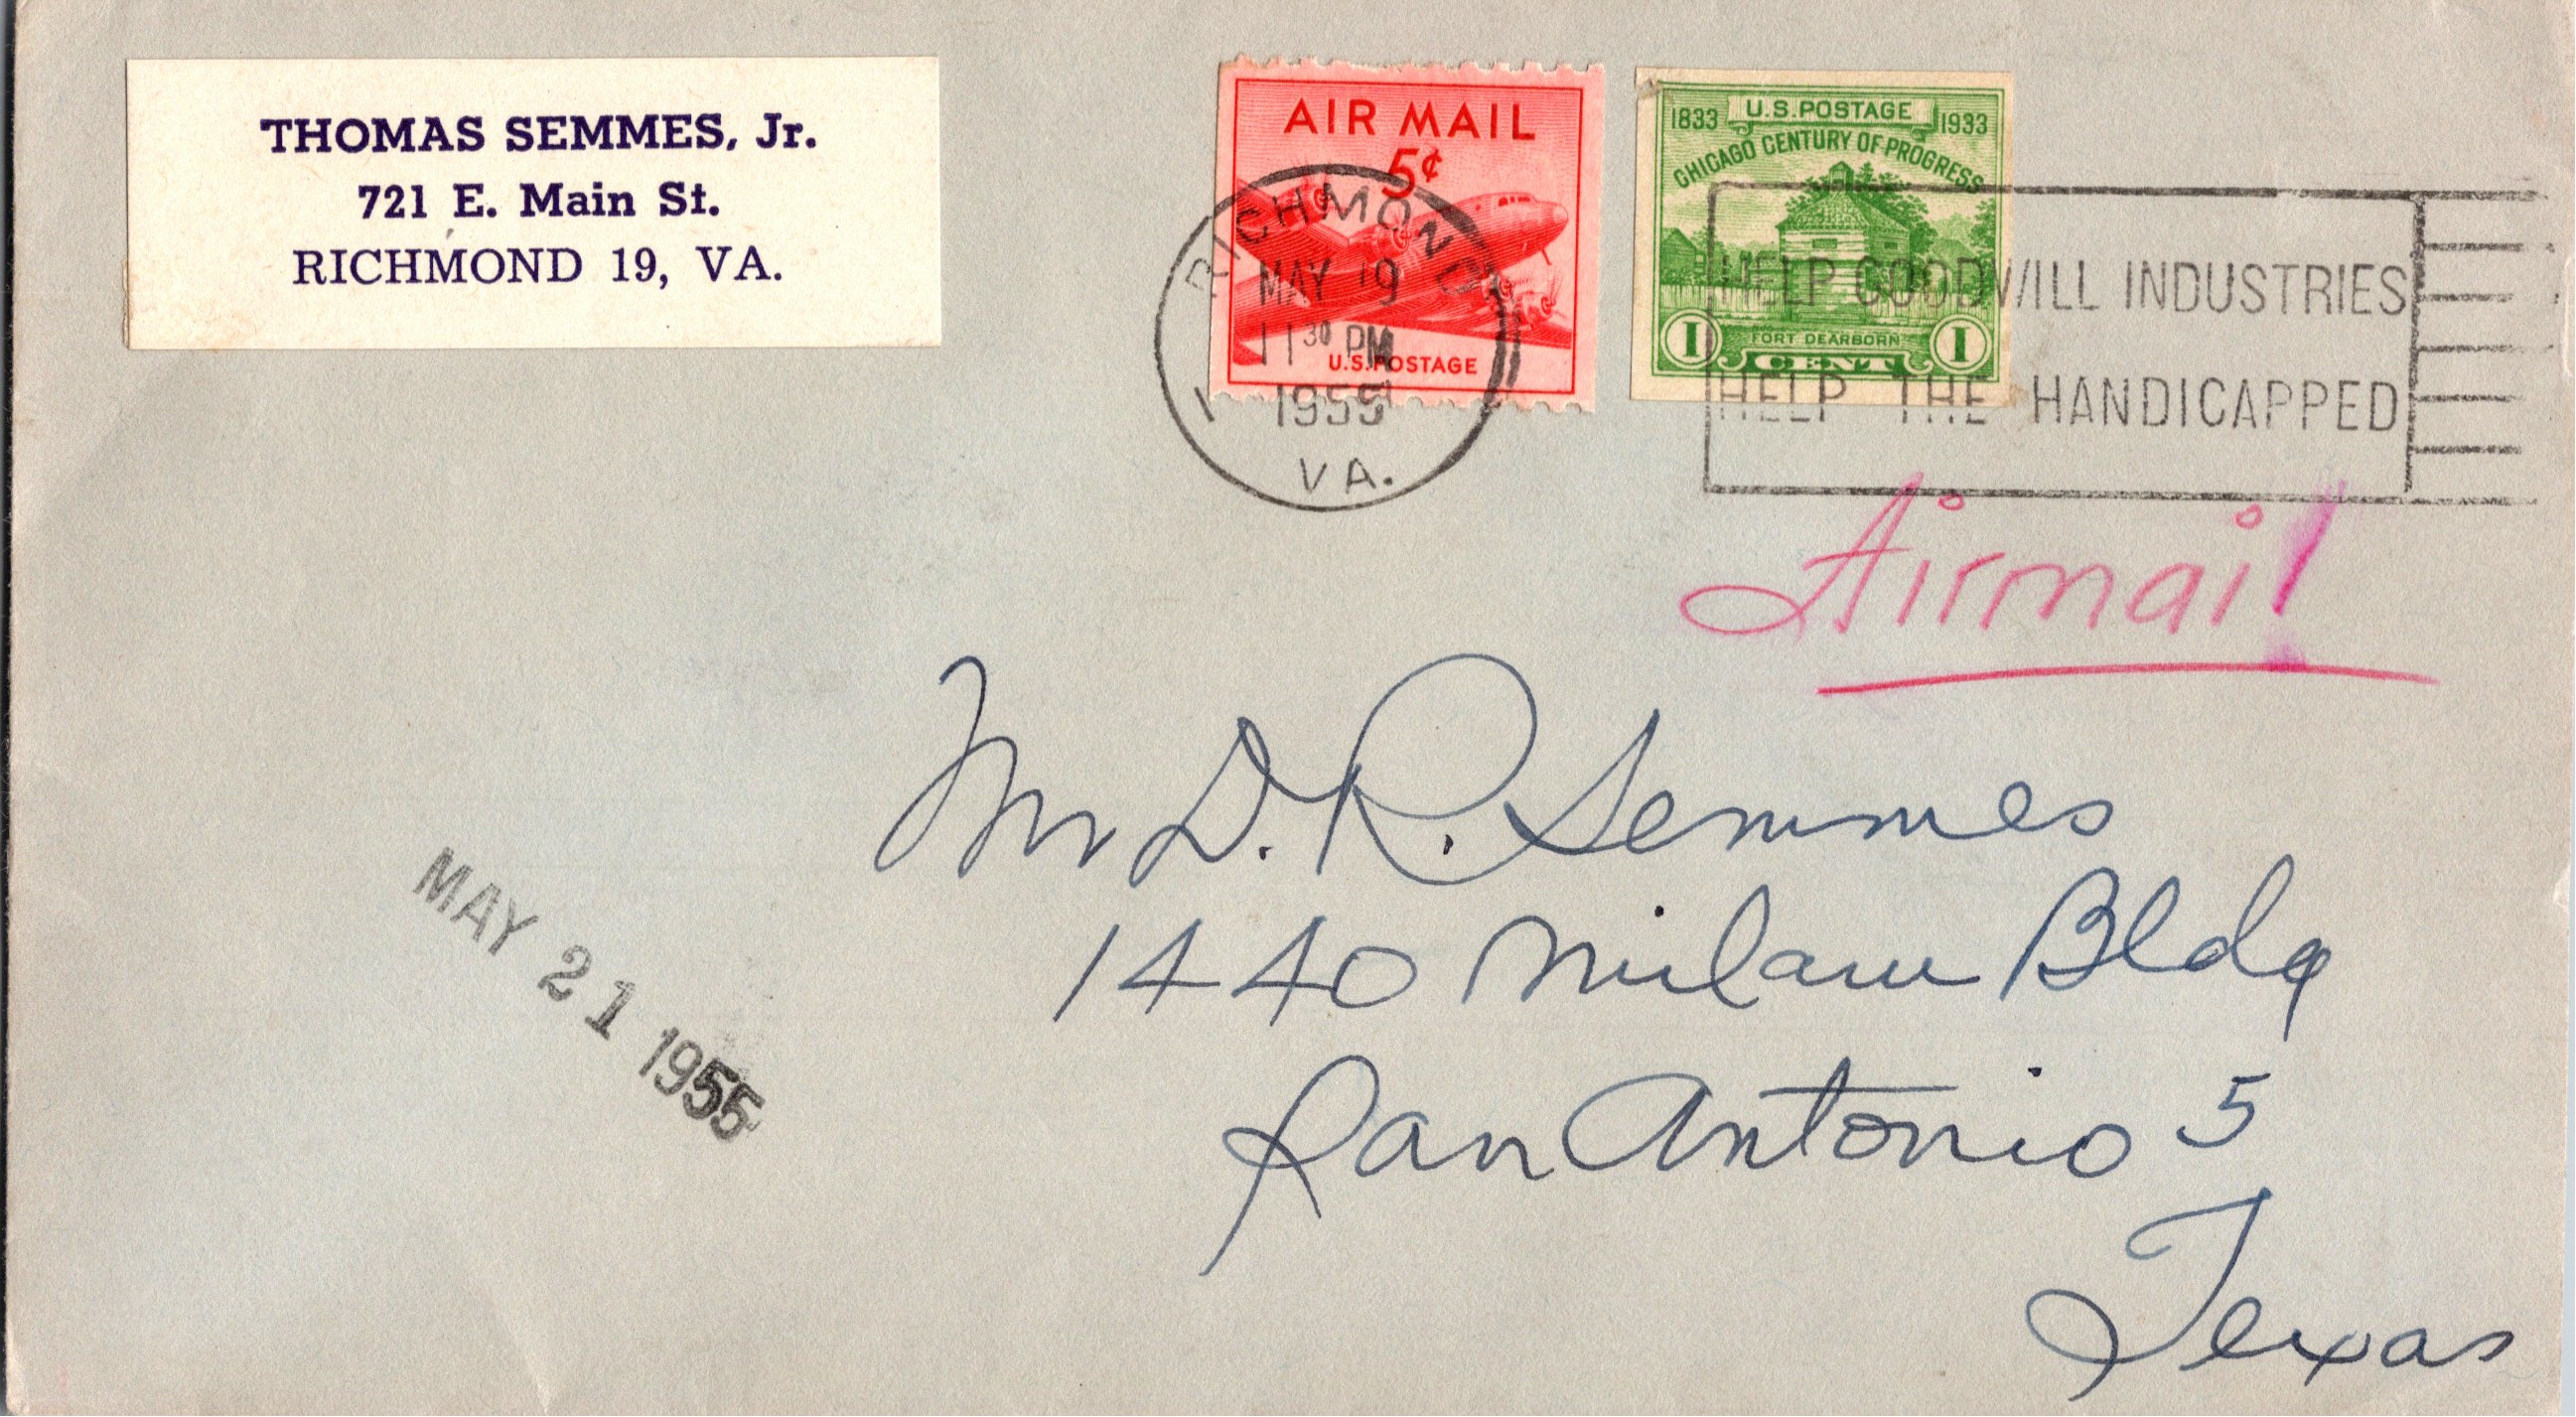 THOMAS SEMMES, Jr.
721 E. Main St.
RICHMOND 19, VA.
AIR MAIL
5¢
U.S. POSTAGE
1833 U.S. POSTAGE 1933
CHICAGO CENTURY OF PROGRESS
FORT DEARBORN
1 CENT 1
RICHMOND
MAY 19
11 30 PM
1955
VA.
HELP GOODWILL INDUSTRIES
HELP THE HANDICAPPED
Airmail
Mr D. R. Semmes
1440 Milam Bldg
San Antonio 5
Texas
MAY 21 1955